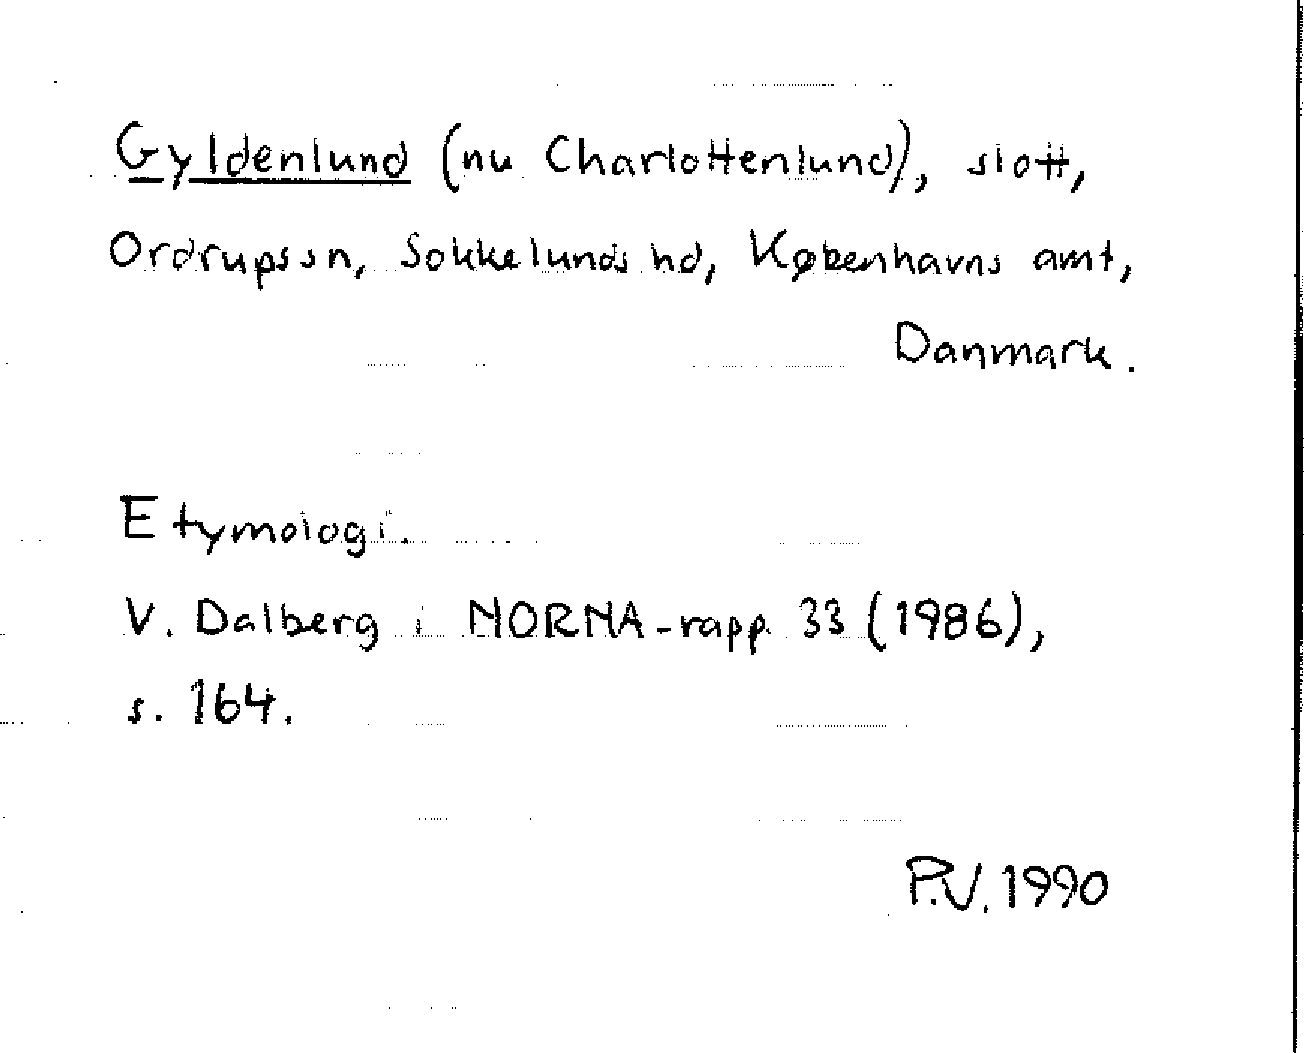 Gyldenlund (nu Charlottenlund), slott,
Ordrups sn, Sokkelunds hd, Københavns amt,
Danmark.
Etymologi.
V. Dalberg i NORNA-rapp. 33 (1986),
s. 164.
P.V. 1990